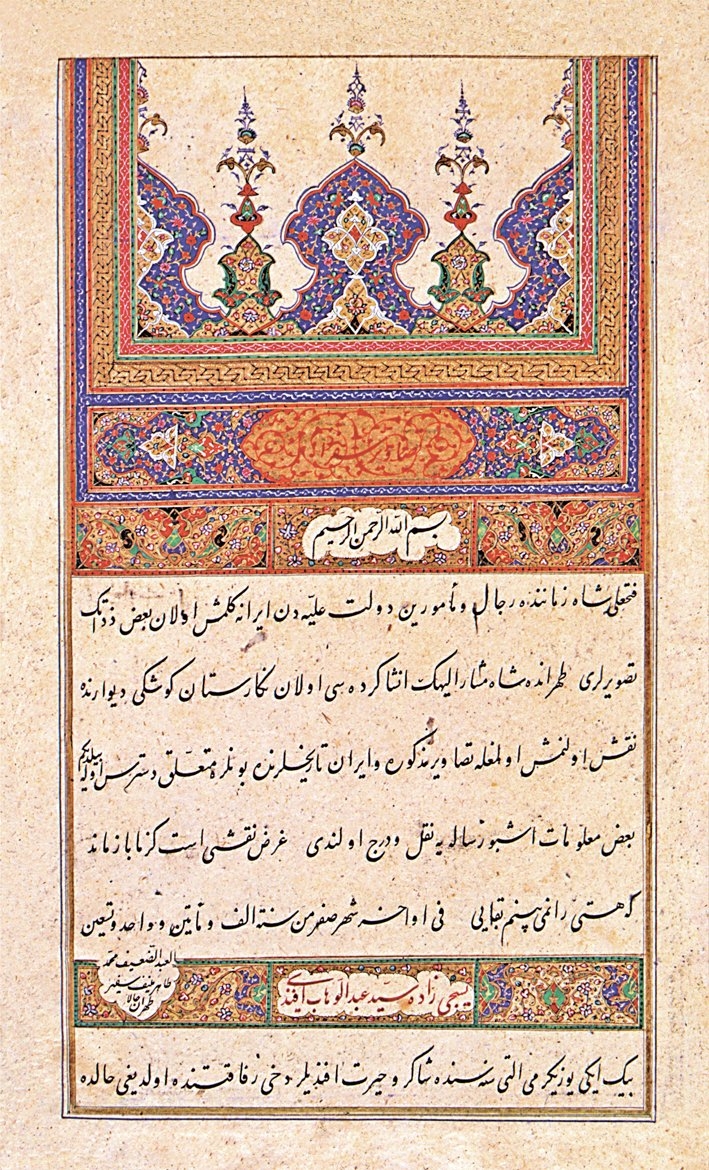 بسم الله الرحمن الرحيم
فتحعلی شاه زماننده رجال و مأمورین دولت علیّه دن ایرانه کلمش اولان بعض ذواتک
تصویرلری طهرانده شاه مشار الیهک انشا کرده سی اولان نکارستان کوشکی دیوارنده
نقش اولنمش اولمغله تصاویر مذکوره و ایران تاریخلرنده بونلره متعلّق دسترس اوله بیلدیکم
بعض معلومات اشبو رساله یه نقل و درج اولندی غرض نقشی است کز ما باز ماند
که هستی را نمی بینم بقایی فی اواخر شهر صفر من سنة الف و مأتین و واحد و تسعین
العبد الضعیف محمد
طاهر منیف سفیر
طهران حالا
یسنجی زاده سیّد عبد الوهاب افندی
بیک ایکی یوز یکرمی التی سنه سنده شاکر و حیرت افندیلر دخی رفاقتنده اولدیغی حالده